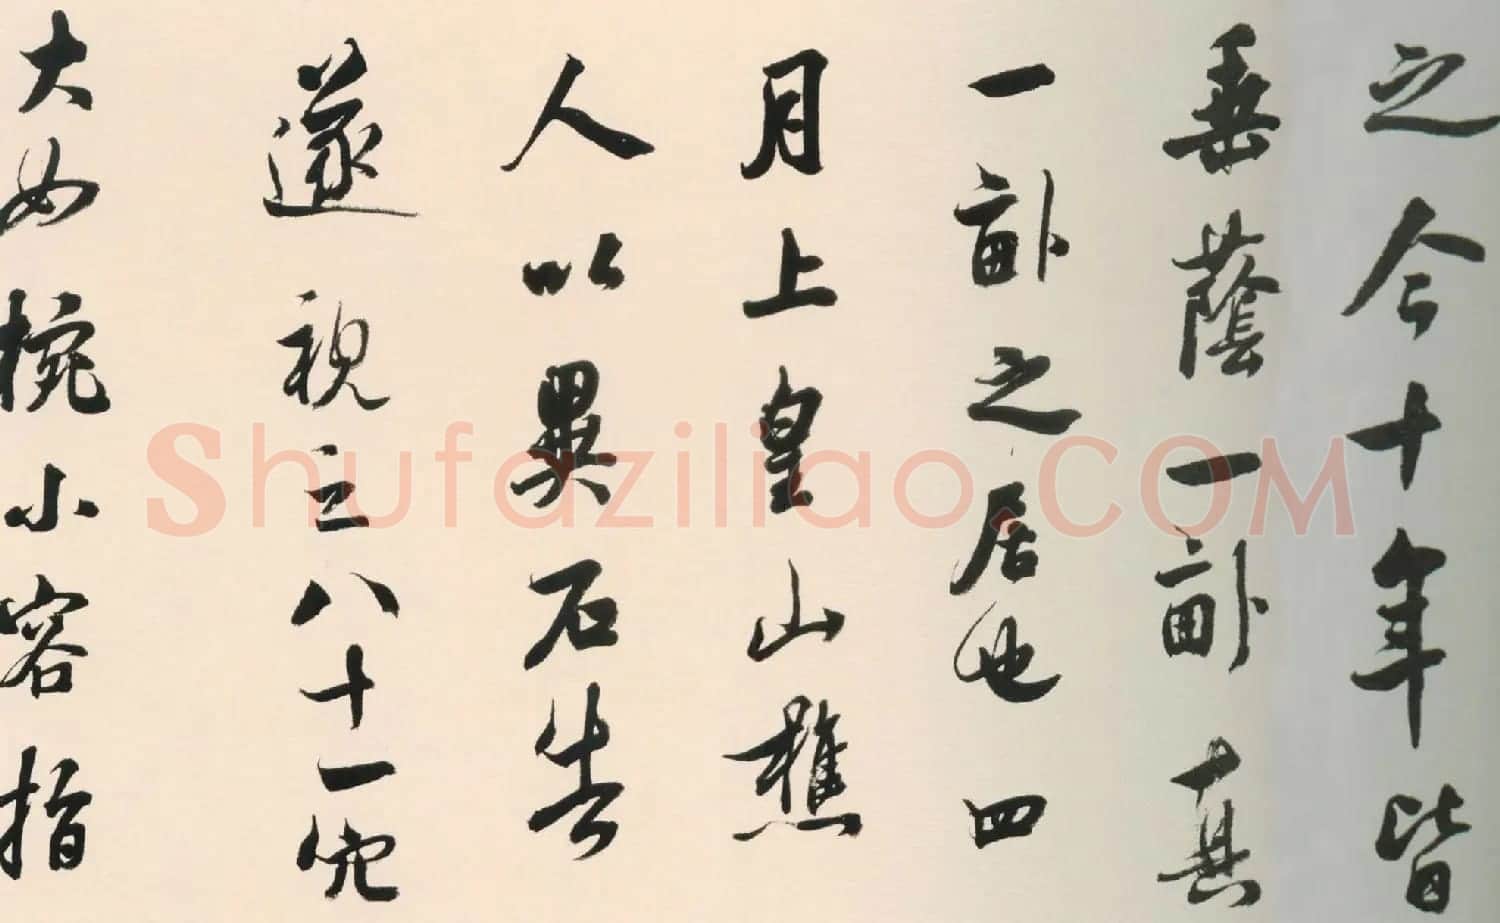 之今十年皆
垂蔭一畝真
一畝之居也四
月上皇山樵
人以異石告
遂視之八十一穴
大如椀小容指
Shufaziliao.COM